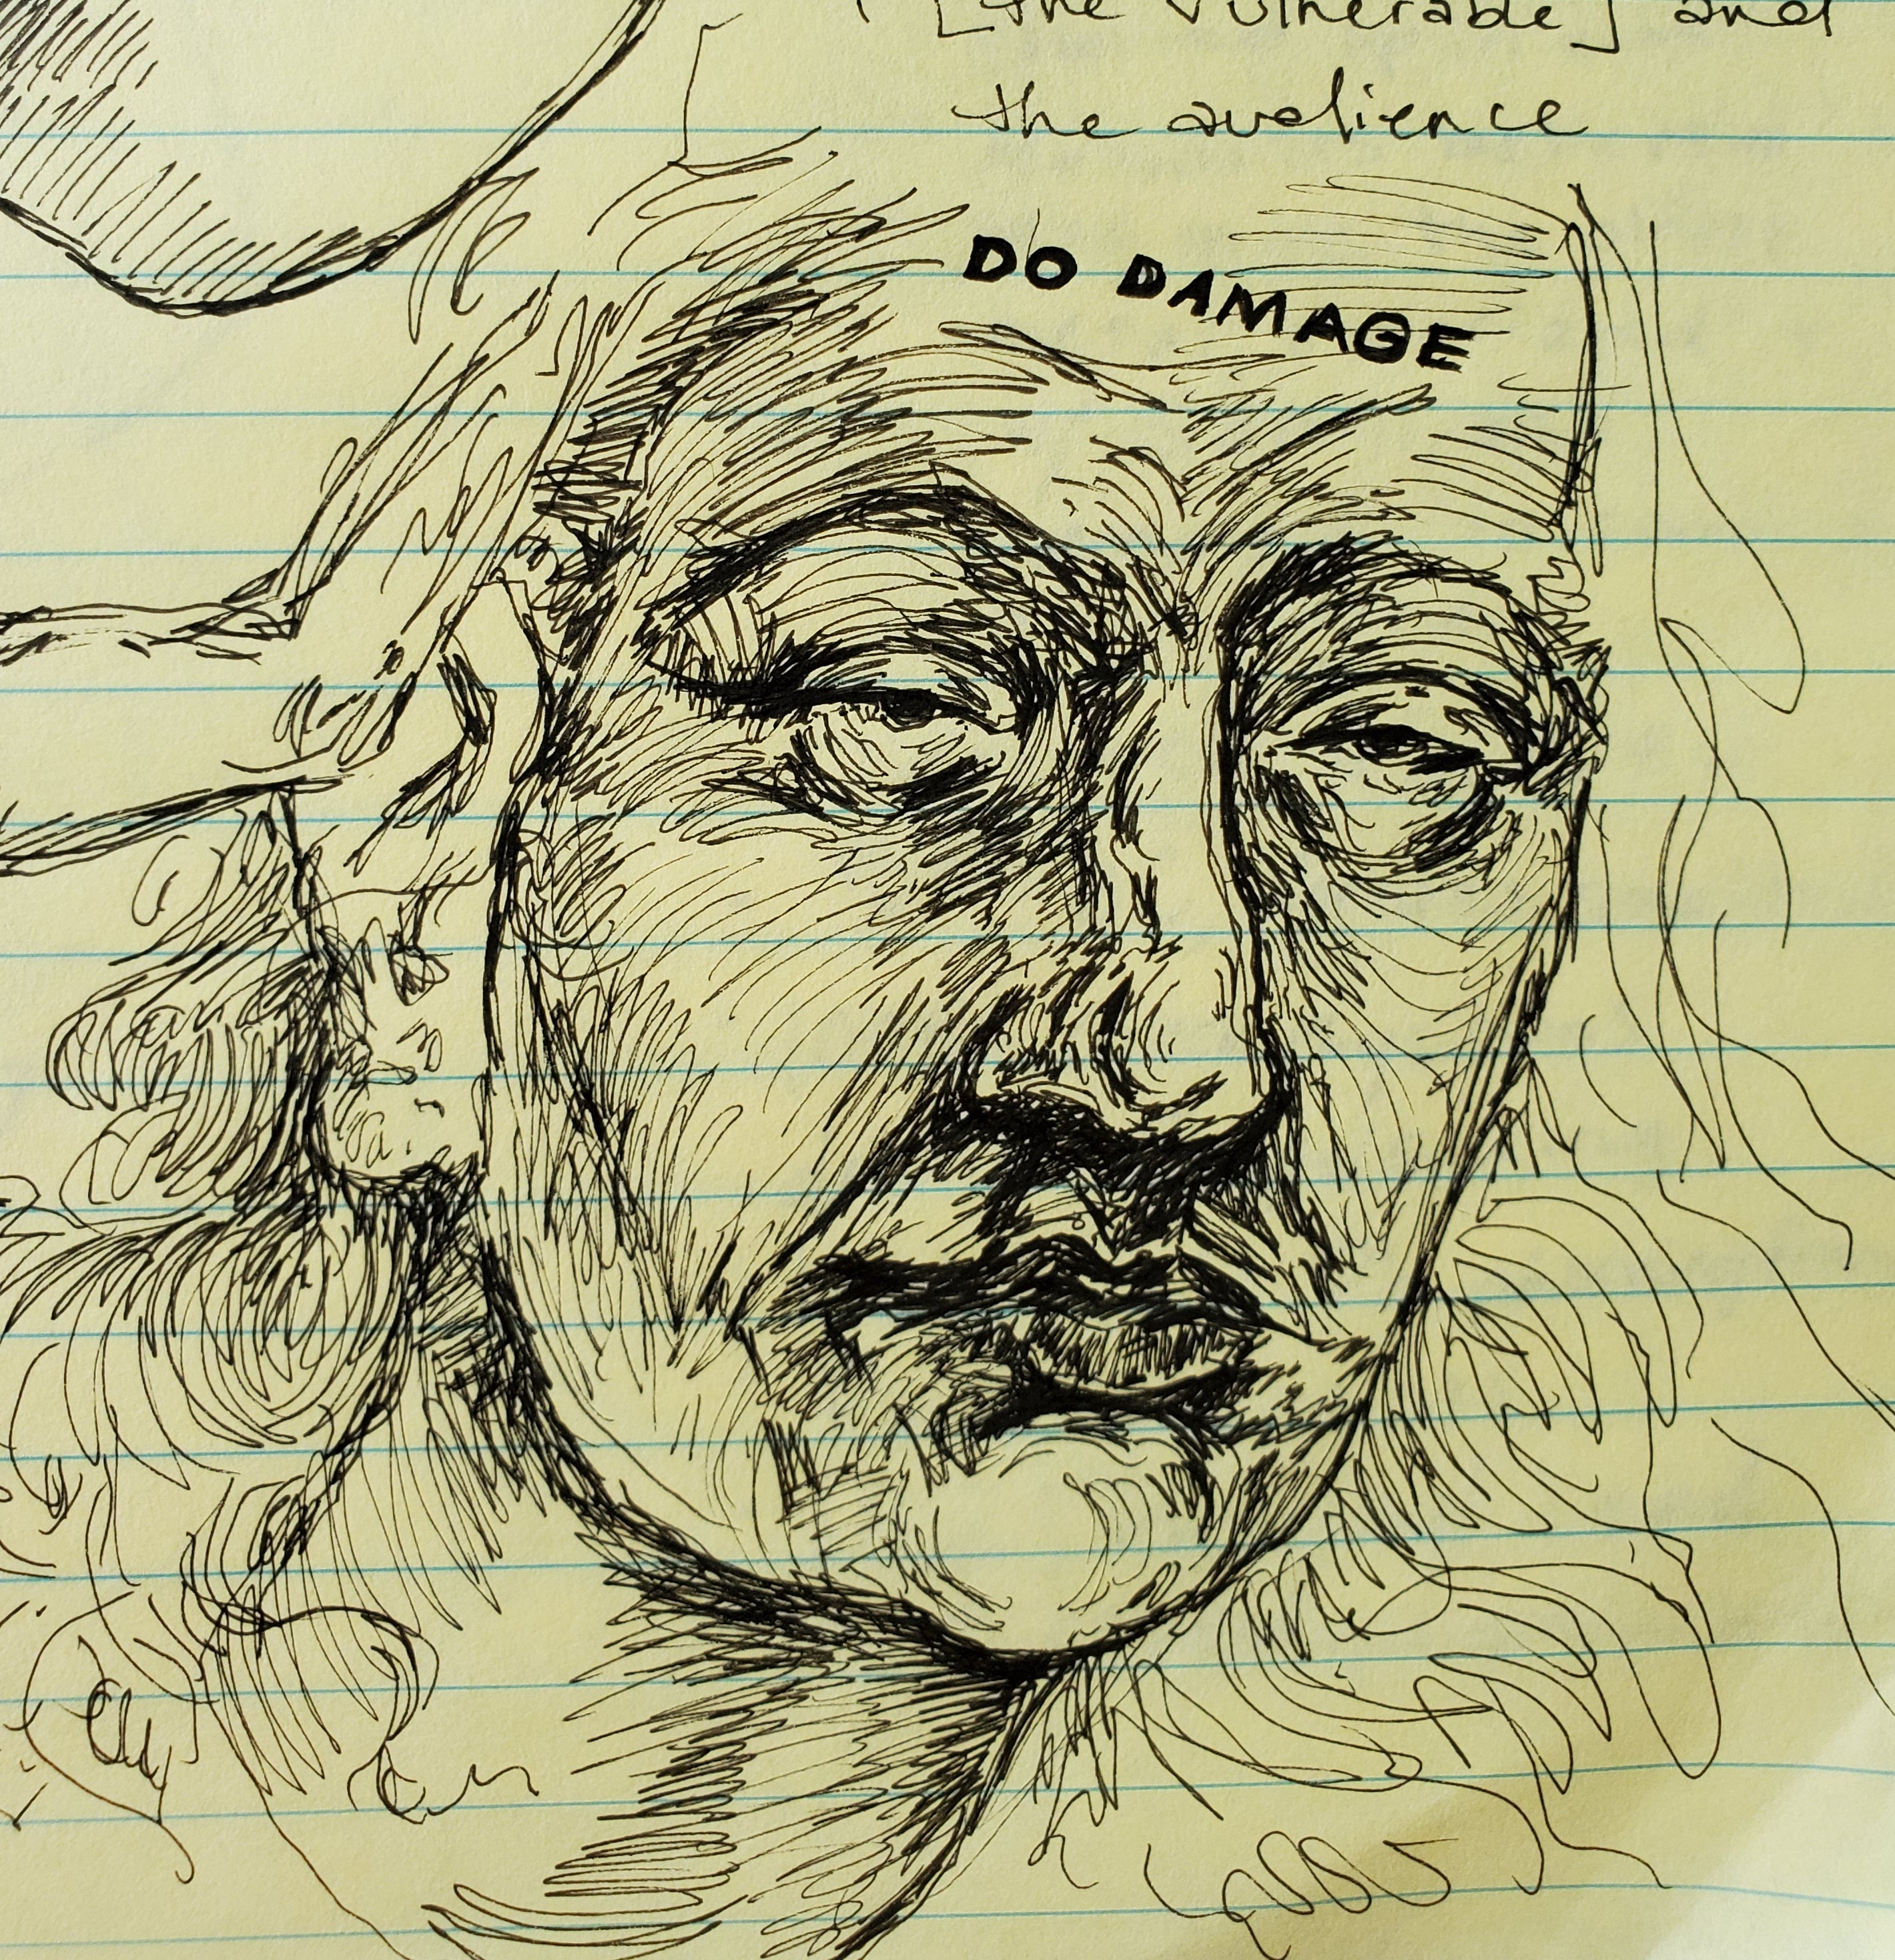 [the vulnerable] and
the audience
DO DAMAGE